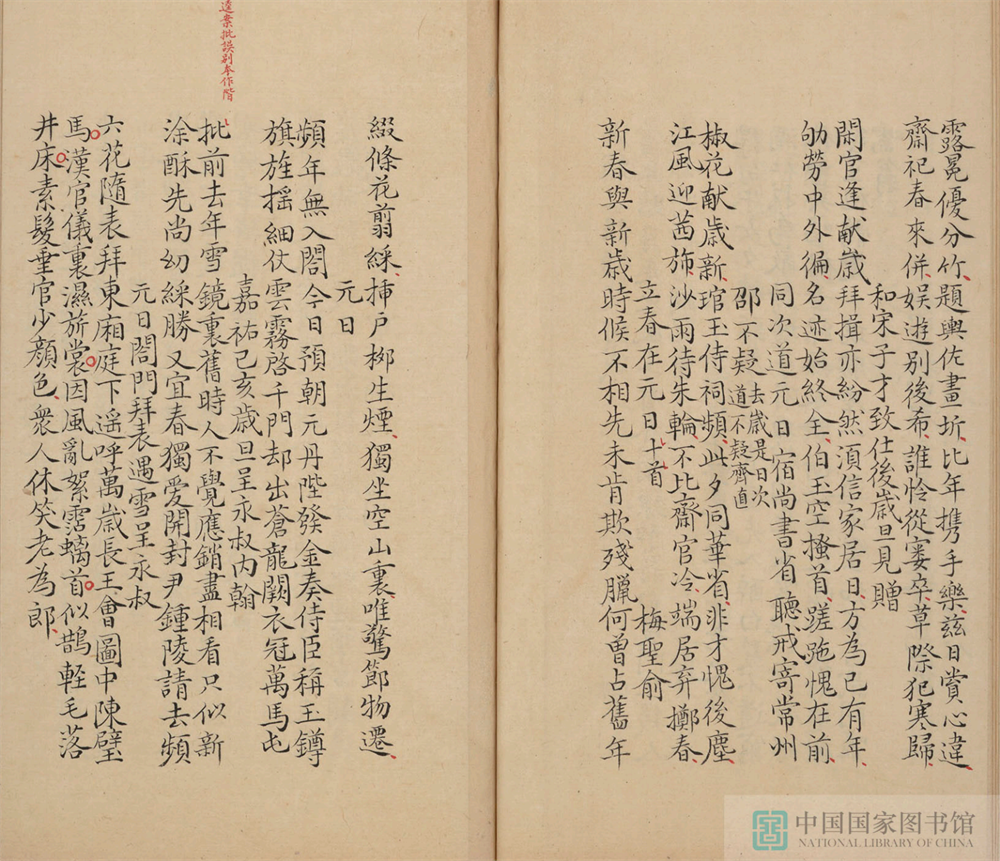 露冕優分竹題輿佐畫圻比年携手樂茲日賞心違
齋祀春來併娱遊別後希誰怜從窶卒草際犯寒歸
和宋子才致仕後歲旦見贈
閑官逢献歲拜揖亦紛然湏信家居日方為已有年
劬勞中外徧名迹始終全伯玉空搔首蹉跎愧在前
同次道元日宿尚書省聽戒寄常州
邵不疑去歲是日次
道不疑齊直
椒花献歲新琯玉侍祠頻此夕同華省非才愧後塵
江風迎茜斾沙雨待朱輪不比齋官冷端居弃擲春
立春在元日十首
梅聖俞
新春與新歲時候不相先未肯欺殘臘何曾占舊年
綴條花剪綵挿戶栁生煙獨坐空山裏唯驚節物遷
元日
頻年無入閤今日預朝元丹陛發金奏侍臣稱玉鐏
旗旌揺細仗雲霧啓千門却出蒼龍闕衣冠萬馬屯
嘉祐已亥歲旦呈永叔內翰
達案批誤别本作階
批前去年雪鏡裏舊時人不覺應銷盡相看只似新
涂酥先尚幼綵勝又宜春獨爱開封尹鍾陵請去頻
元日閤門拜表遇雪呈永叔
六花隨表拜東廂庭下遥呼萬歲長王會圖中陳璧
馬漢官儀裏濕旂裳因風亂絮霑螭首似鵲輕毛落
井床素髮垂官少顏色衆人休笑老為郎
中国国家图书馆
NATIONAL LIBRARY OF CHINA